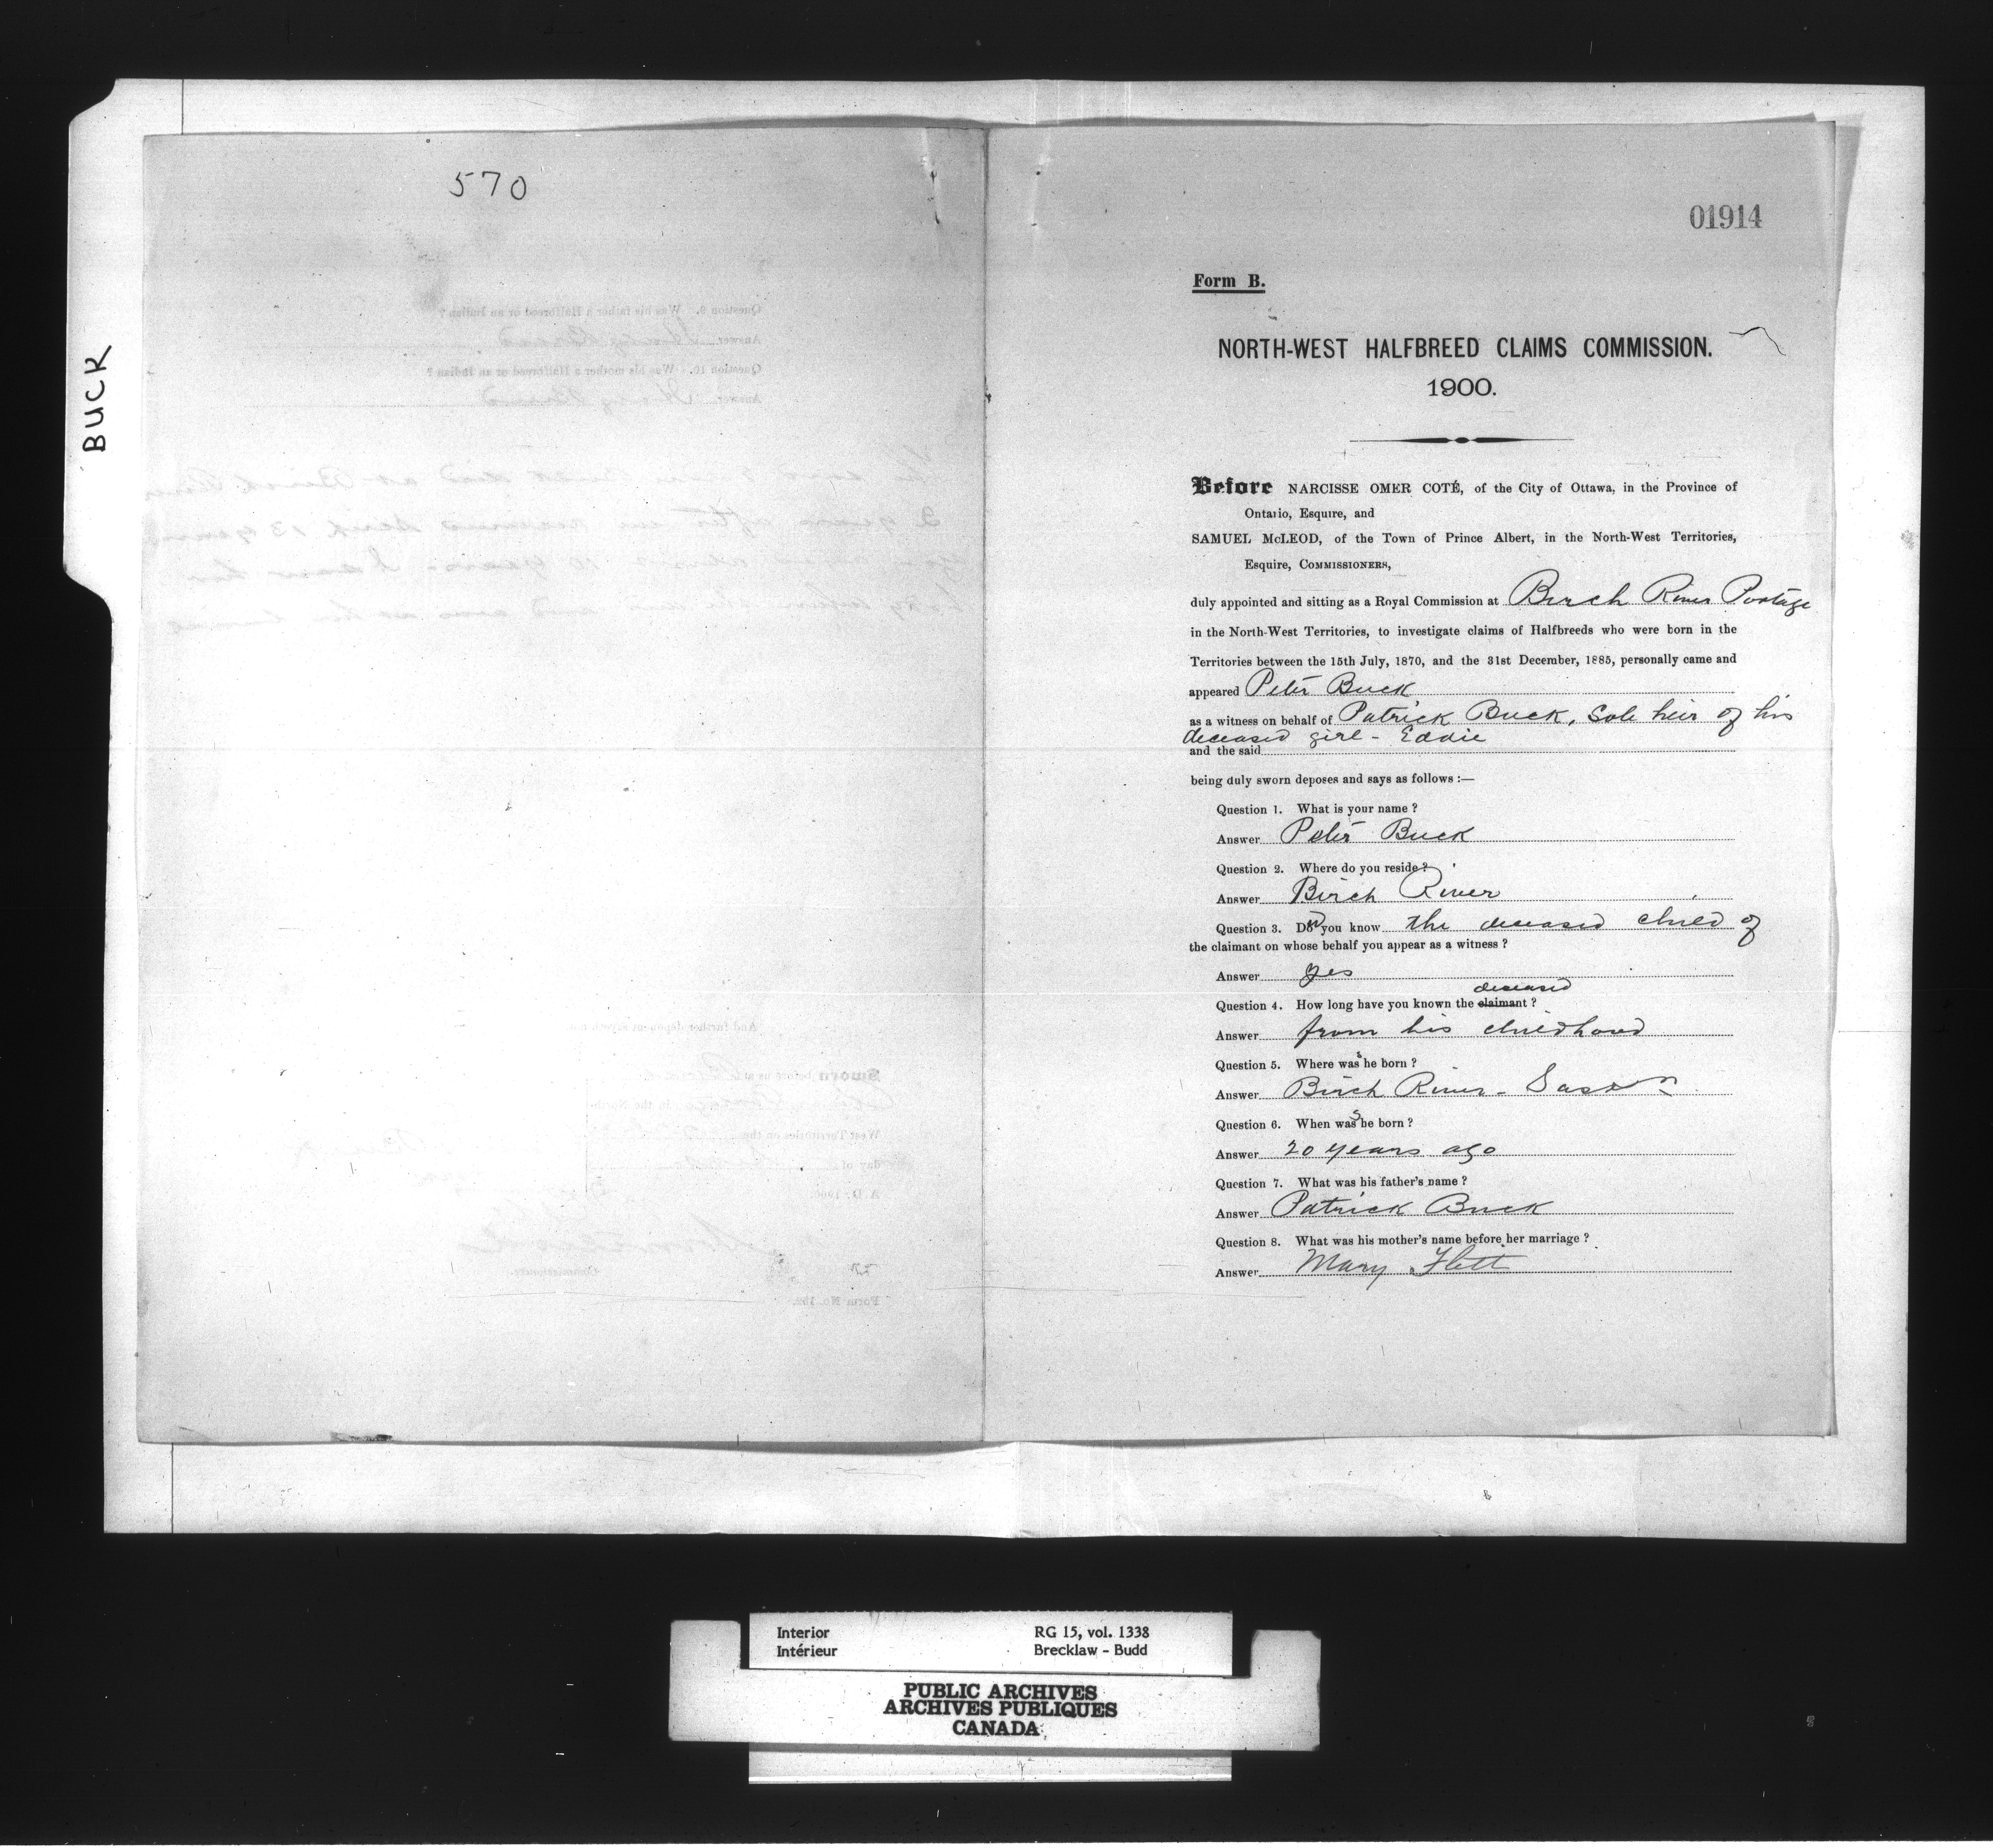 BUCK
570
01914
Form B.
NORTH-WEST HALFBREED CLAIMS COMMISSION.
1900.
Before NARCISSE OMER COTÉ, of the City of Ottawa, in the Province of
Ontario, Esquire, and
SAMUEL McLEOD, of the Town of Prince Albert, in the North-West Territories,
Esquire, COMMISSIONERS,
duly appointed and sitting as a Royal Commission at Birch River Portage
in the North-West Territories, to investigate claims of Halfbreeds who were born in the
Territories between the 15th July, 1870, and the 31st December, 1885, personally came and
appeared Peter Buck
as a witness on behalf of Patrick Buck, Sole heir of his
deceased girl - Eddie
and the said
being duly sworn deposes and says as follows :—
Question 1. What is your name ?
Answer Peter Buck
Question 2. Where do you reside ?
Answer Birch River
Question 3. Did you know the deceased child of
the claimant on whose behalf you appear as a witness ?
Answer yes
deceased
Question 4. How long have you known the claimant ?
Answer from his childhood
Question 5. Where was she born ?
Answer Birch River - Sask
Question 6. When was she born ?
Answer 20 years ago
Question 7. What was his father's name ?
Answer Patrick Buck
Question 8. What was his mother's name before her marriage ?
Answer Mary Flett
Interior RG 15, vol. 1338
Intérieur Brecklaw - Budd
PUBLIC ARCHIVES
ARCHIVES PUBLIQUES
CANADA